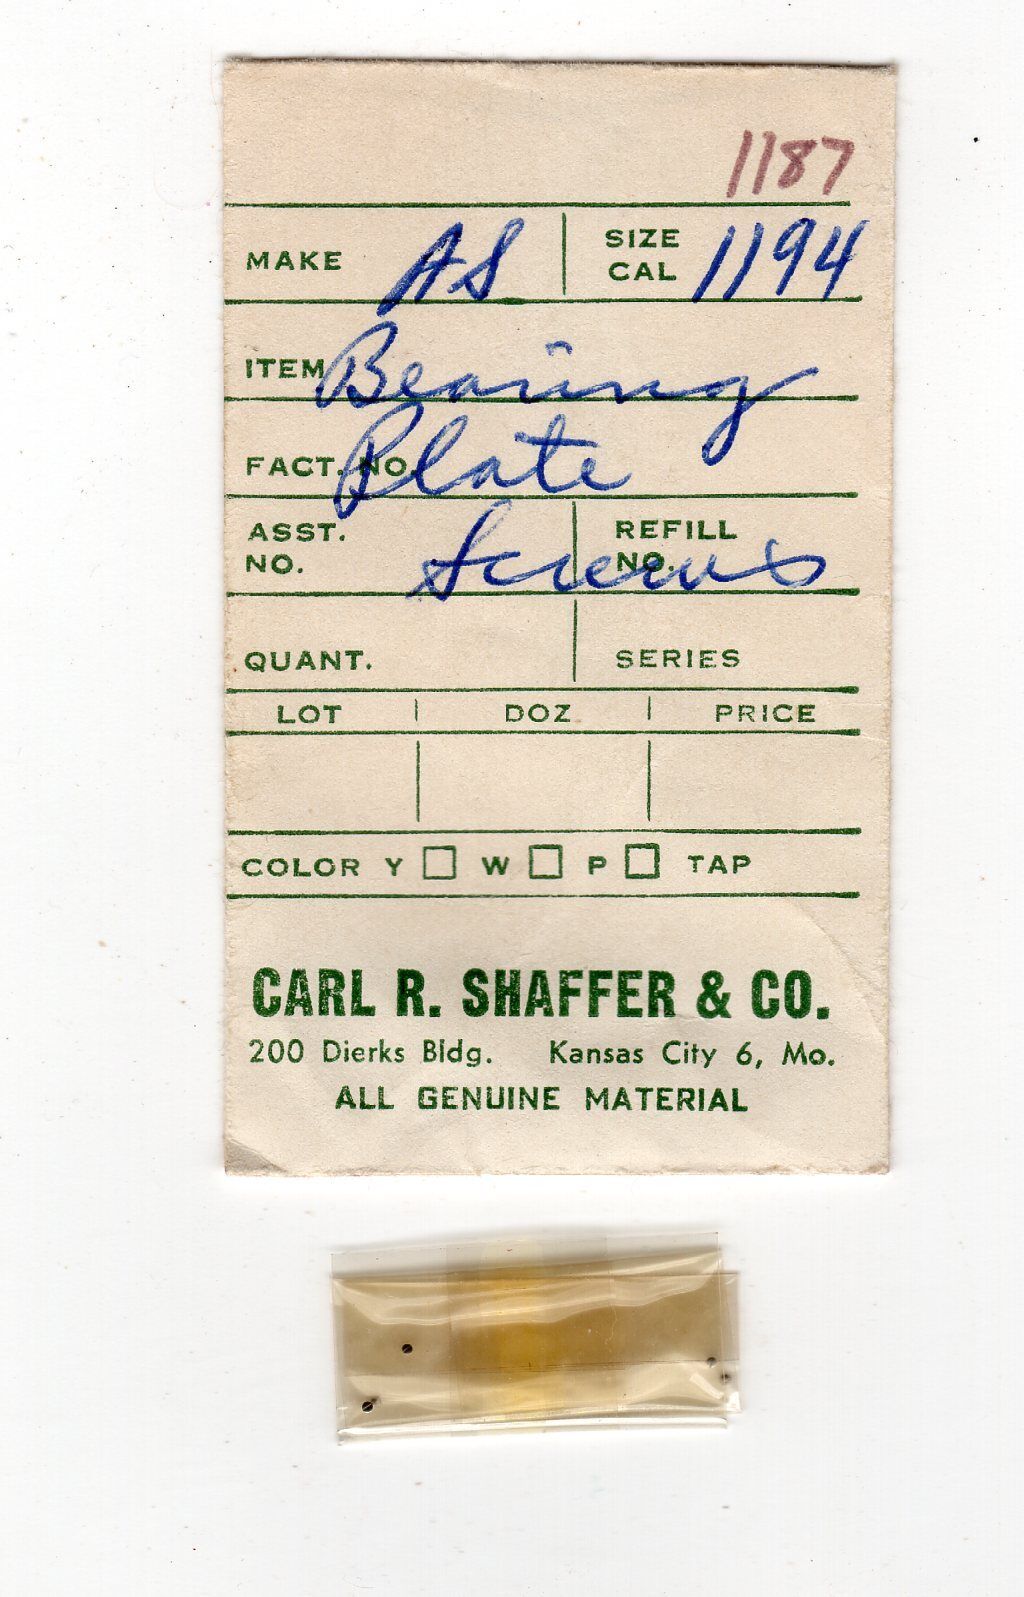 1187
MAKE AS SIZE CAL 1194
ITEM Bearing
FACT. NO. Plate
ASST. NO. Screws REFILL NO.
QUANT. SERIES
LOT DOZ PRICE
COLOR Y W P TAP
CARL R. SHAFFER & CO.
200 Dierks Bldg. Kansas City 6, Mo.
ALL GENUINE MATERIAL